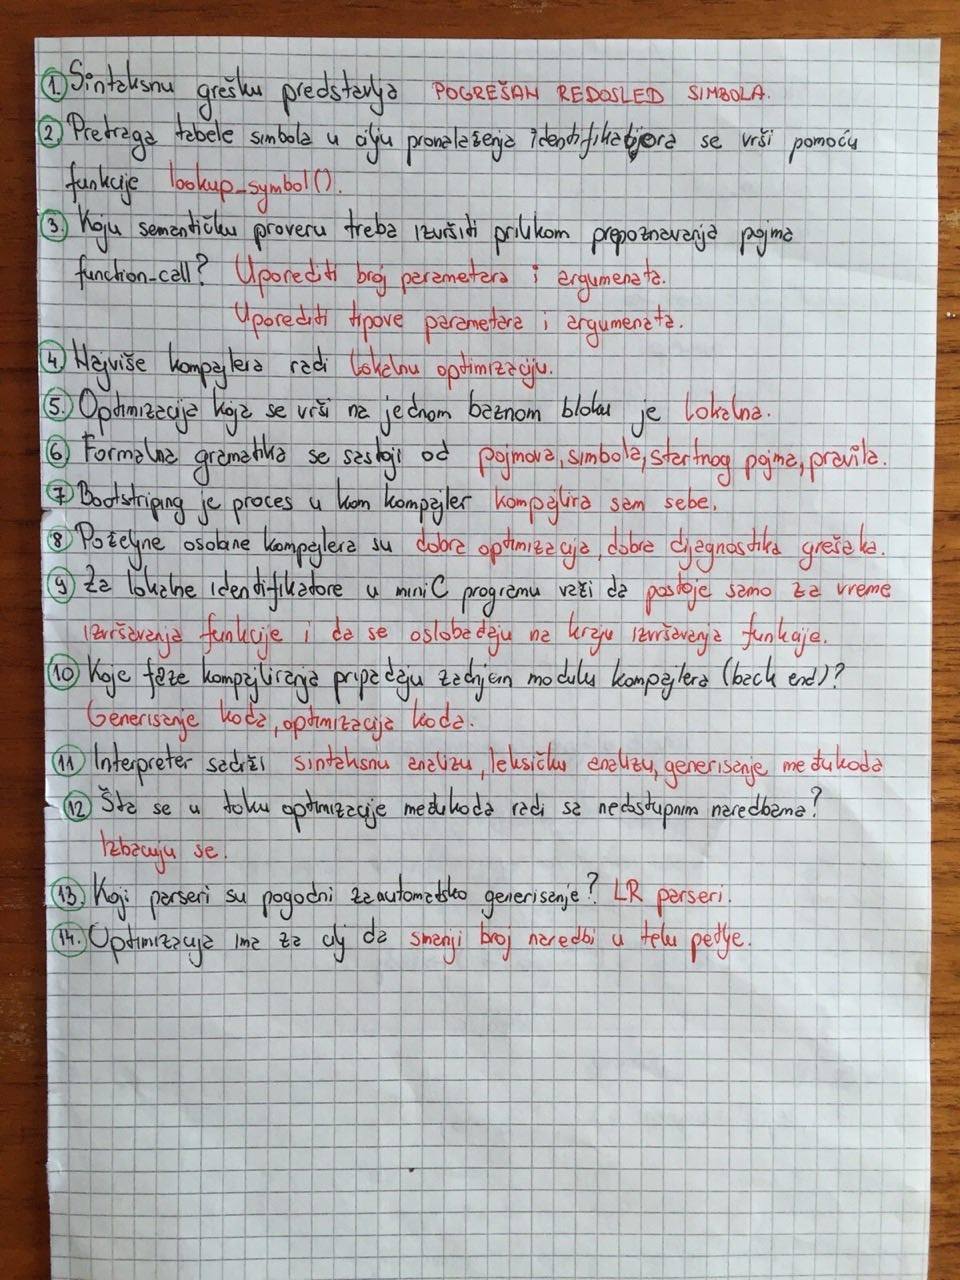 1. Sintaksnu grešku predstavlja POGREŠAN REDOSLED SIMBOLA.
2 Pretraga tabele simbola u cilju pronalaženja identifikatora se vrši pomoću
funkcije lookup_symbol().
3. Koju semantičku proveru treba izvršiti prilikom prepoznavanja pojma
function_call? Uporediti broj parametara i argumenata.
Uporediti tipove parametara i argumenata.
4. Najviše kompajlera radi lokalnu optimizaciju.
5. Optimizacija koja se vrši na jednom baznom bloku je lokalna.
6 Formalna gramatika se sastoji od pojmova, simbola, startnog pojma, pravila.
7 Bootstriping je proces u kom kompajler kompajlira sam sebe.
8 Poželjne osobine kompajlera su dobra optimizacija, dobra dijagnostika grešaka.
9 Za lokalne identifikatore u miniC programu važi da postoje samo za vreme
izvršavanja funkcije i da se oslobađaju na kraju izvršavanja funkcije.
10 Koje faze kompajliranja pripadaju zadnjem modulu kompajlera (back end)?
Generisanje koda, optimizacija koda.
11 Interpreter sadrži sintaksnu analizu, leksičku analizu, generisanje međukoda
12 Šta se u toku optimizacije međukoda radi sa nedostupnim naredbama?
Izbacuju se.
13. Koji parseri su pogodni za automatsko generisanje? LR parseri.
14. Optimizacija ima za cilj da smanji broj naredbi u telu petlje.